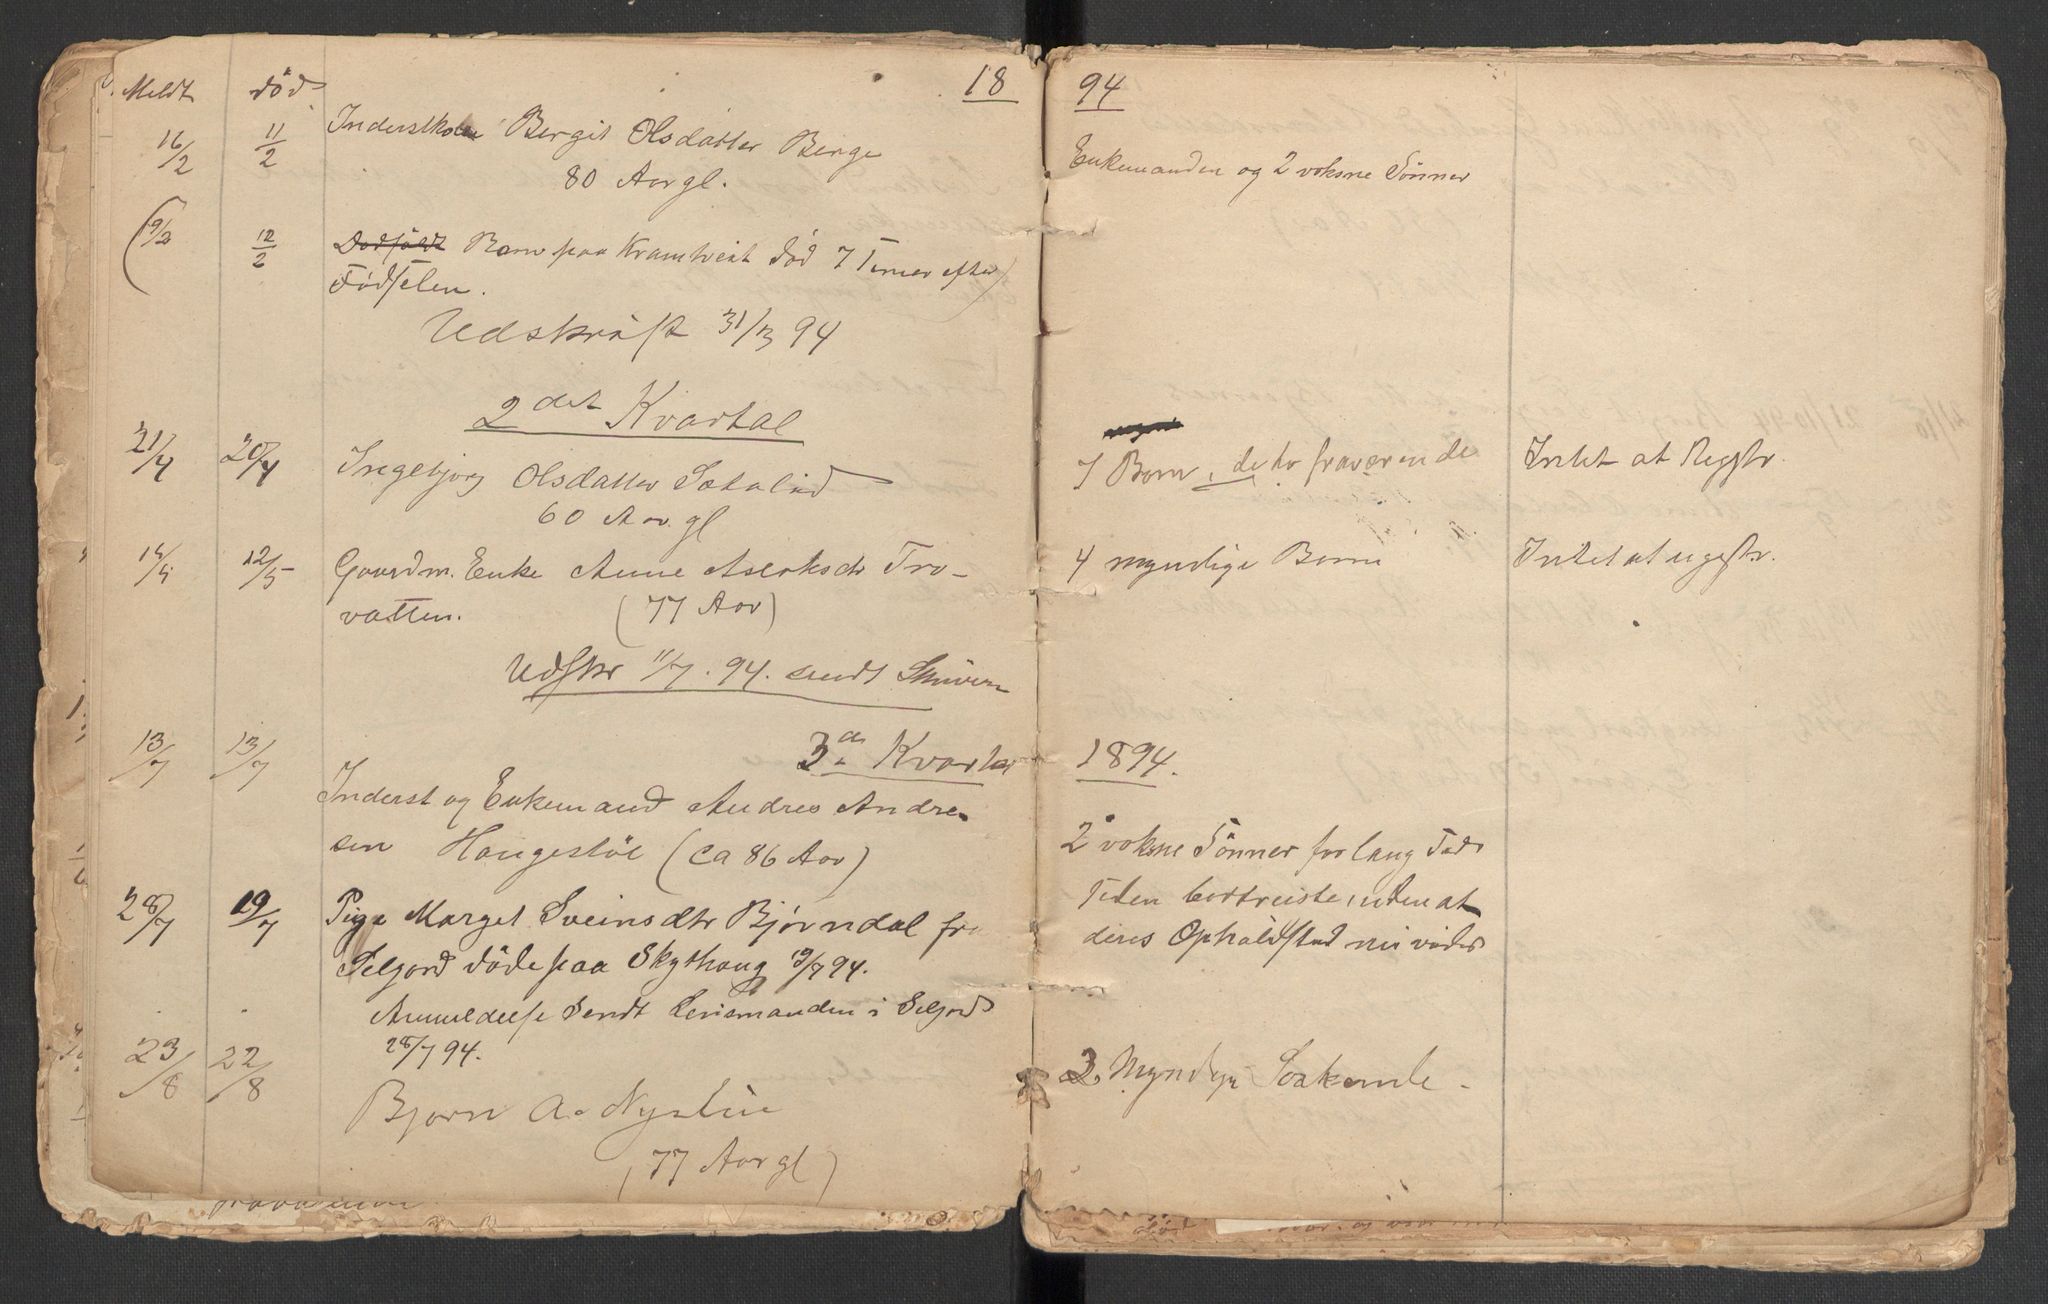 Meldt död 18
16/2 11/2 Inderstkone Bergit Olsdatter Berge
80 Aar gl.
(9/2 12/2 Dødfødt Barn paa Kramtveit död 7 Timer efter
Födselen.)
Udskrift 31/3 94
2det Kvartal
21/4 20/4 Ingebjörg Olsdatter
60 Aar gl
14/5 12/5 Gaardm. Enke Anne Aslaksdr Tro-
vatten. (77 Aar)
Udskr 11/7. 94. sendt Skriveren
13/7 13/7 3die Kvartal
Inderst og Enkemand Andres Andre-
sen Haugestöl (ca 86 Aar)
28/7 19/7 Pige Marget Sveinsdtr Bjørndal fra
Seljord döde paa Skythaug 19/7 94.
Anmeldelse sendt Lensmanden i Seljord
28/7 94.
23/8 22/8
Bjørn A. Nystöe
(77 Aar gl)
94
Enkemanden og 2 voksne Sönner
7 Börn, de to fraværende Intet at Regstr.
4 myndige Börn Intet at regstr.
1894.
2 voksne Sönner for lang Tid
siden bortreiste, uden at
deres Opholdsted nu vides
3 Myndige